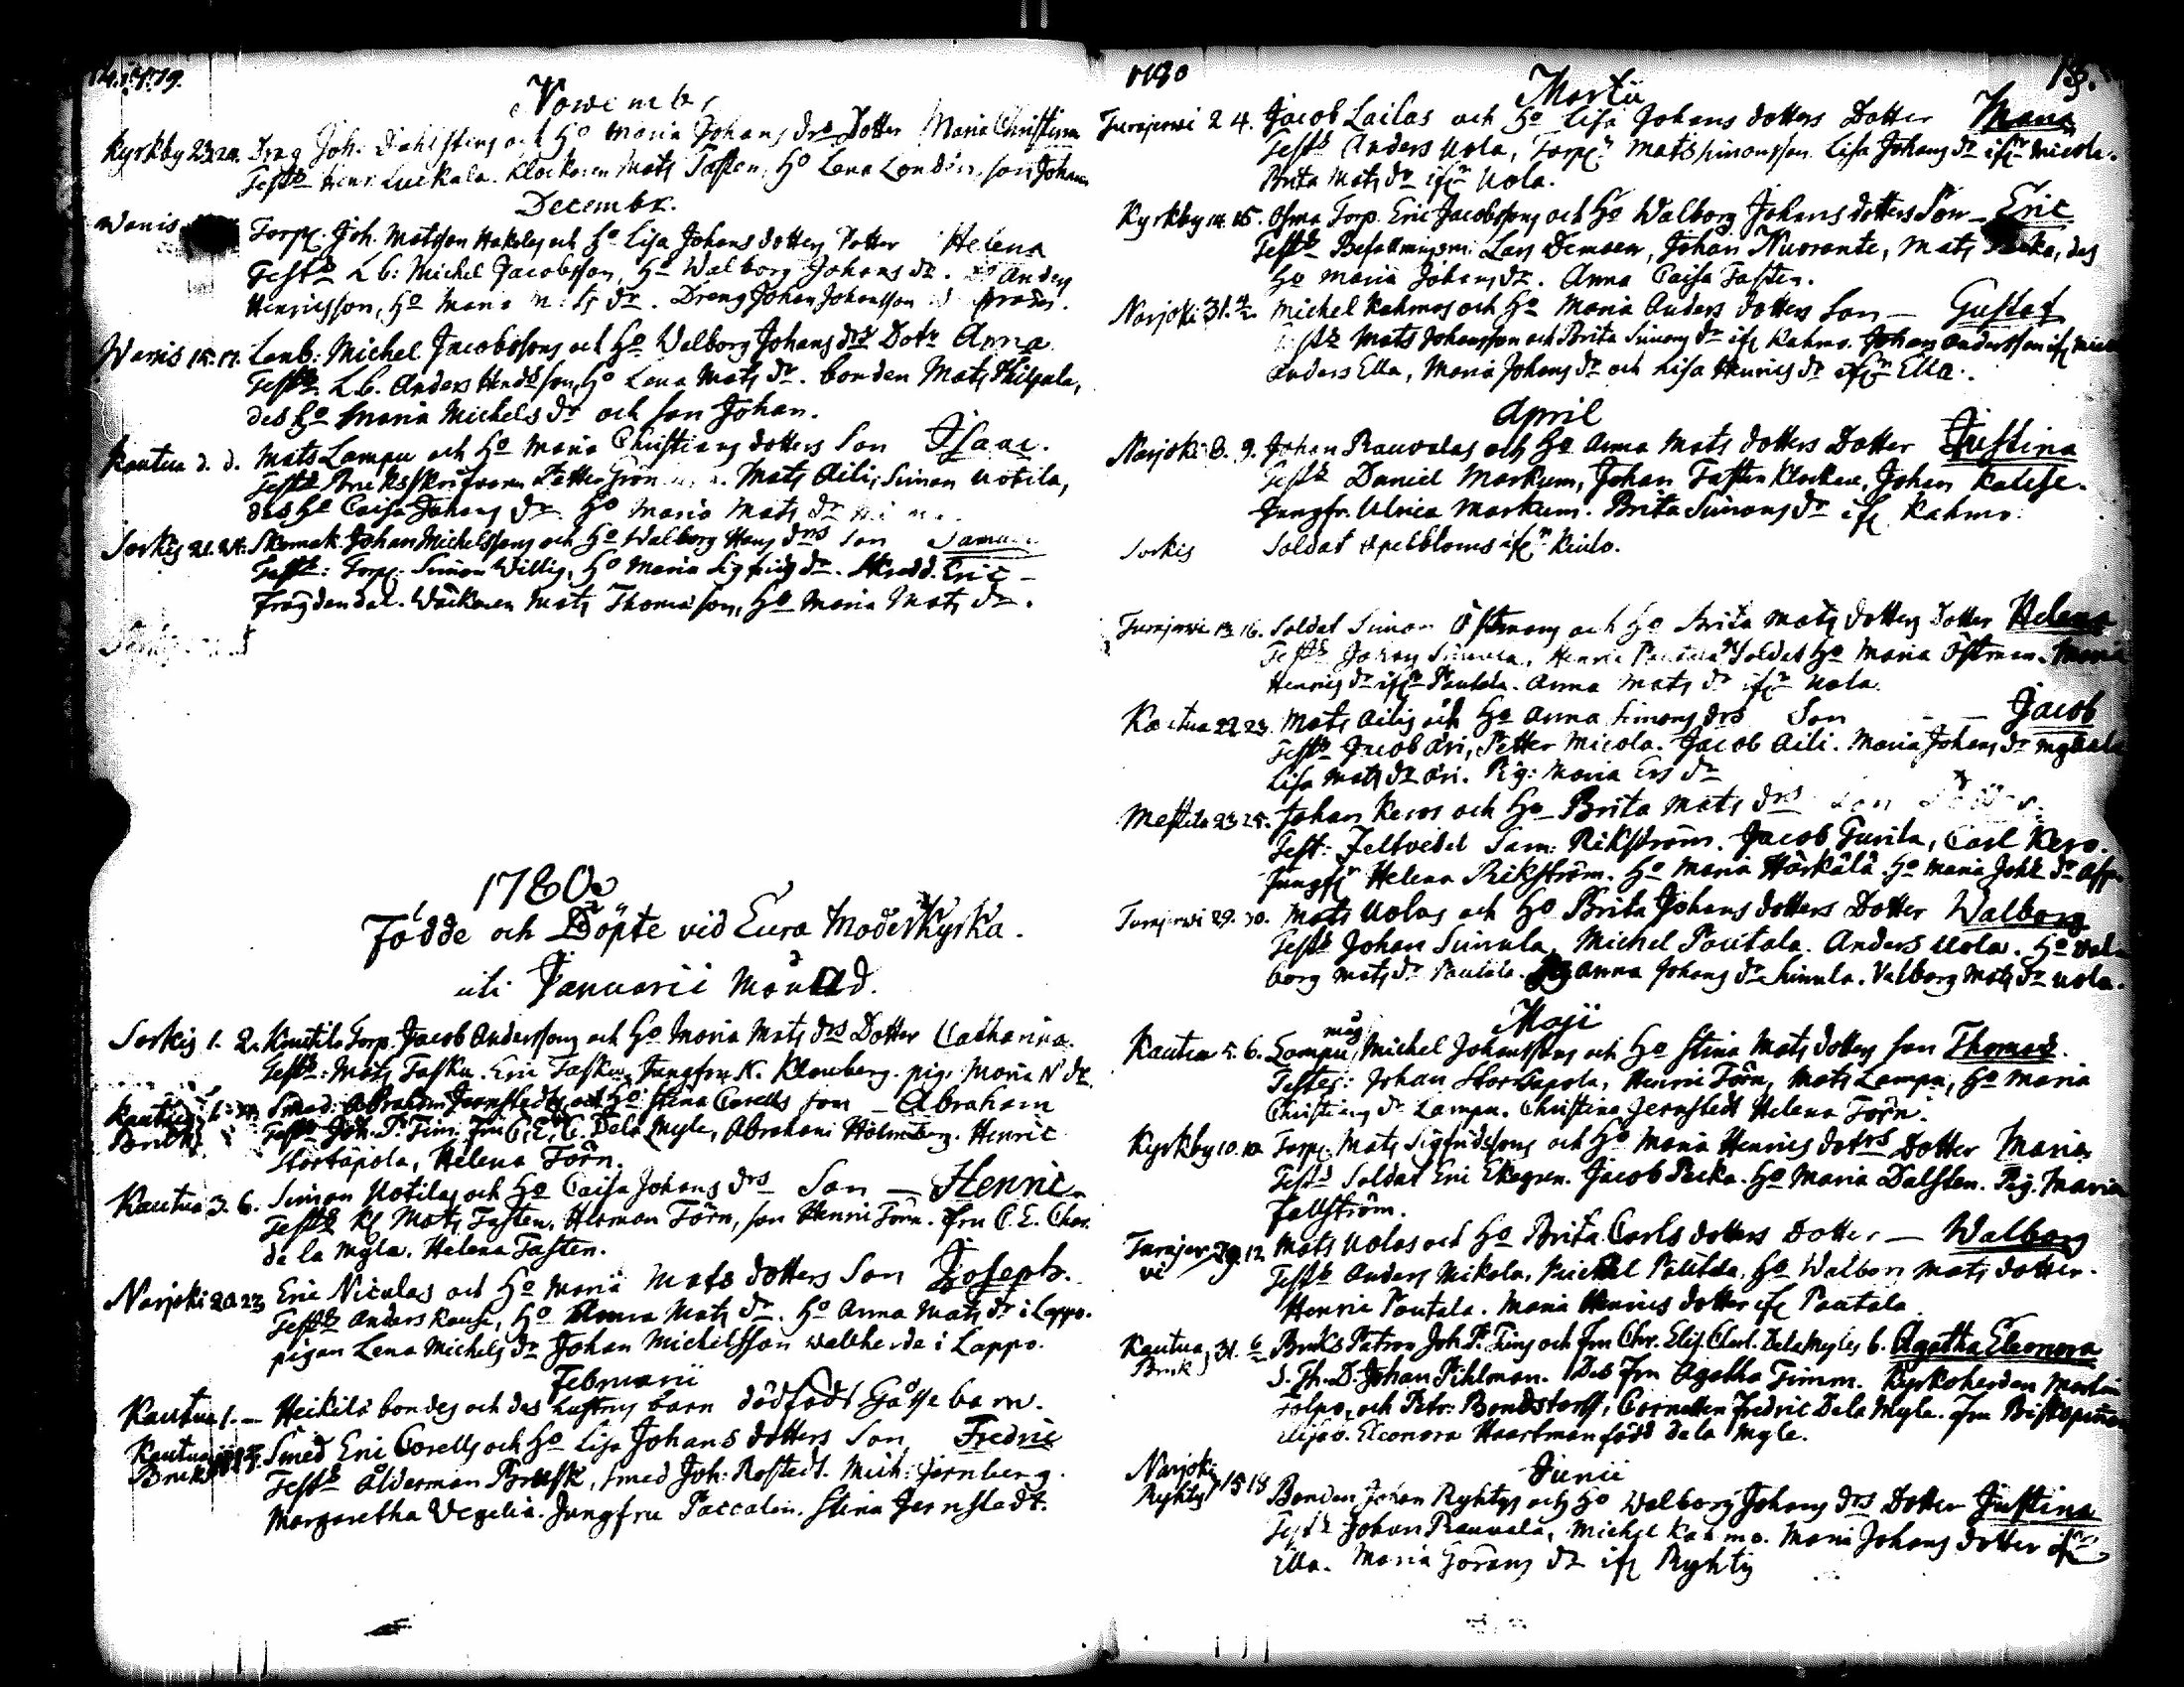 1779.
Novemb.
Kyrkby 23. 24. Dreng Joh. Dahlstens och Ho Maria Johans drs Dotter Maria Christina
Testes Henr. Luckala. Klockaren Mats Fasten, Ho Lena London, son Johan
Decembr.
Wanis Torp. Joh. Matsson Hakolas och Ho Lisa Johans dotters Dotter Helena
Testes Lb: Michel Jacobsson, Ho Walborg Johans dr. Anders
Henricsson, Ho Maria Mats dr. Dreng Johan Johansson
Wanis 15. 17. Lanb: Michel Jacobssons och Ho Walborg Johans drs Dotr Anna
Testes Lb. Anders Hendrsson, Ho Lena Mats dr. bonden Mats Philpala,
des Ho Maria Michels dr och son Johan.
Kautua d. d. Mats Lampu och Ho Maria Christians dotters Son Isaac.
Testes Bruksskrifvaren Petter Grön Mats Aili, Simon Uotila,
des Ho Caisa Johans dr. Ho Maria Mats dr
Sorkis 21. 24. Skomak. Johan Michelssons och Ho Walborg Hans drs Son Samuel
Testes: Torp. Simon Willig, Ho Maria Sigfrids dr. Skredd. Eric
Frögdendal. Wäckaren Mats Thomasson, Ho Maria Mats dr.
1780
Födde och Döpte vid Eura Moderkyrka.
uti Januarii Månad.
Sorkis 1. 2. Knutila Torp. Jacob Anderssons och Ho Maria Mats drs Dotter Catharina.
Testes: Mats Tasku. Eric Tasku. Jungfru N. Klouberg. pig. Maria N dr
Kautua Smed: Abraham Jernstedts och Ho Stina Corells son — Abraham
Bruk Testes Joh. P. Tim. Fru C. E. C. Dela Myle, Abraham Holmberg. Henric
Störtäpola, Helena Törn.
Kautua 3. 6. Simon Uotilas och Ho Caisa Johans drs Son — Henric.
Testes Kl. Mats Fasten, Herman Törn, son Henric Törn. Fru C. E. Char.
de la Myle. Helena Fasten.
Narjoki 20. 23 Eric Niculas och Ho Maria Mats dotters Son Joseph.
Testes Anders Kause, Ho Anna Mats dr. Ho Anna Mats dr i Lappo.
pigan Lena Michels dr Johan Michelsson wallherde i Lappo.
Februarii
Kautua 1. — Heikilä bondes och des hustrus barn dödfödt Gåsse barn.
Kautua Smed Eric Corells och Ho Lisa Johans dotters Son Fredric
Bruk Testes Ålderman Brusk, smed Joh: Rostedt. Mich: Jernberg.
Margaretha Vegelia. Jungfru Paccalen. Stina Jernstedt.
1780 13.
Martii
Turajerwi 2 4. Jacob Lailas och Ho Lisa Johans dotters Dotter Maria
Testes Anders Uola, Torp. Mats Simonsson Lisa Johans dr ifr. Micola.
Brita Mats dr ifr. Uola.
Kyrkby 14. 15. Torp. Eric Jacobssons och Ho Walborg Johans dotters Son — Eric
Testes Befallningsm. Lars Demoen, Johan Nuorante, Mats Pecka, des
Ho Maria Johans dr. Anna Caisa Fasten.
Narjoki 31. Michel Kahmos och Ho Maria Anders dotters Son — Gustaf
Testes Mats Johansson och Brita Simons dr ifr. Kahmo. Johan Andersson ifr.
Anders Ella, Maria Johans dr och Lisa Henrics dr ifr. Ella.
April
Narjoki 8. 9. Johan Rauvolas och Ho Anna Mats dotters Dotter Justina
Testes Daniel Markum, Johan Fasten Klockare, Johan
Jungfr. Ulrica Markum. Brita Simons dr ifr. Kahmo.
Sorkis Soldat Apelbloms ifr. Kiulo.
Turajerwi 13. 16. Soldat Simon Östmans och Ho Brita Mats dotters Dotter Helena
Testes Johan Sinnula, Henric Pautala Soldat Ho Maria Östman. Maria
Henrics dr ifr. Pautala. Anna Mats dr ifr. Uola.
Kautua 22. 23. Mats Ailis och Ho Anna Simons drs Son — Jacob
Testes Jacob Ari, Petter Micola. Jacob Aili. Maria Johans dr
Lisa Mats dr Äri. Pig: Maria Ers dr
Mestila 23. 25. Johan Keros och Ho Brita Mats drs Son
Test: Feltvebel Sam: Rikström. Jacob Turila, Carl Kero.
Jungfr Helena Rikström. Ho Maria Härkälä. Ho Maria Johs dr
Turajerwi 29. 30. Mats Uolas och Ho Brita Johans dotters Dotter Walborg
Testes Johan Sinnula, Michel Pautala. Anders Uola. Ho Wal-
borg Mats dr Pautala. Anna Johans dr Sinnula. Valborg Mats dr Uola.
Maji
Kautua 5. 6. Lampu måg Michel Johanssons och Ho Stina Mats dotters son Thomas.
Testes: Johan Störtäpola, Henric Törn, Mats Lampu, Ho Maria
Christians dr Lampu. Christina Jernstedt Helena Törn.
Kyrkby 10. 10. Torp. Mats Sigfridssons och Ho Maria Henrics dotrs Dotter Maria
Testes Soldat Eric Ekegren. Jacob Pecka. Ho Maria Dalsten. Pig. Maria
Fallström.
Turajer 12. Mats Uolas och Ho Brita Carls dotters Dotter — Walborg
vi Testes Anders Mikola, Michel Pautala, Ho Walborg Mats dotter.
Henric Pautala. Maria Henrics dotter ifr. Pautala
Kautua 31. Bruks Patron Joh. P. Tims och Fru Chr. Elis. Charl. Dela Myles b. Agatha Eleonora
Bruk d. Th. D. Johan Pihlman. Des Fru Agatha Timm. Kyrkoherden Martin
Tolpo, och Petr: Bondstorff, Cornetten Fredric Dela Myle. Fru Biskopinnan
Elisab. Eleonora Haartman född Dela Myle.
Junii
Narjoki 15 18 Bonden Johan Ryhtys och Ho Walborg Johans drs Dotter Justina
Ryhty Testes Johan Rauvala, Michel Kahmo. Maria Johans dotter ifr.
Ella. Maria Görans dr ifr. Ryhty